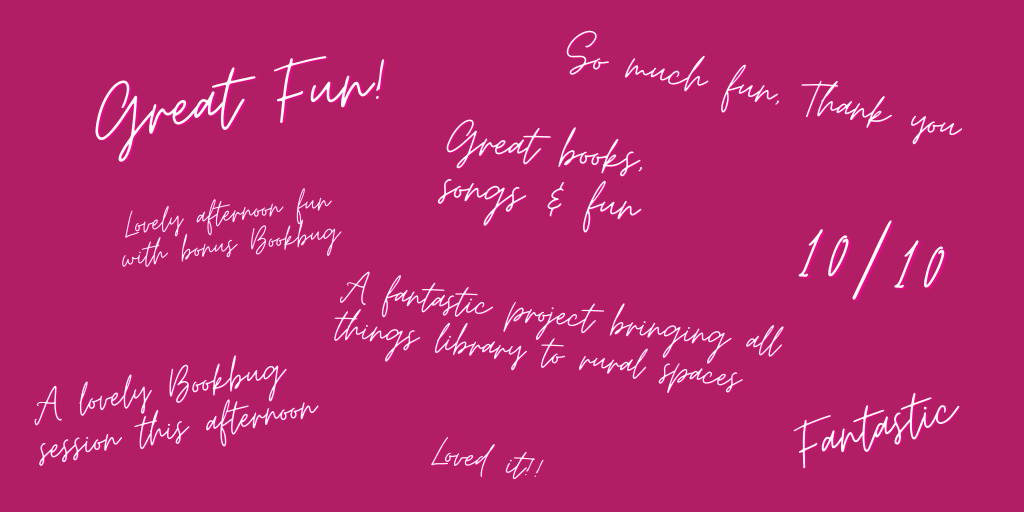 Great Fun!
So much fun, Thank you
Great books,
songs & fun
Lovely afternoon fun
with bonus Bookbug
10/10
A fantastic project bringing all
things library to rural spaces
A lovely Bookbug
session this afternoon
Fantastic
Loved it!!